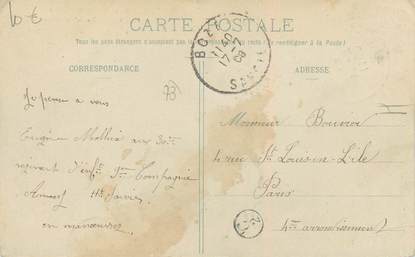 10 €
CARTE POSTALE
Tous les pays étrangers n'acceptent pas la au recto (Se renseigner à la Poste)
CORRESPONDANCE
ADRESSE
BOZEL
17-7
08
73
Je pense à vous
Eugène au 30me
régiment d'infie Compagnie
Annecy Hte Savoie
en manoeuvres
Monsieur Bouvier
4 rue St Louis en L'ile
Paris
4me arrondissement